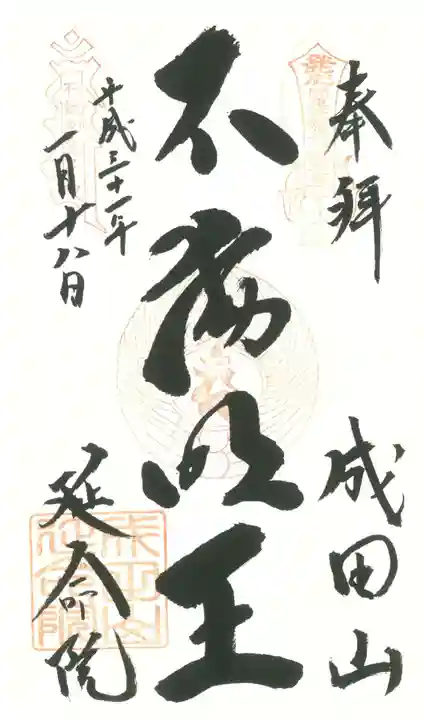 奉拝
成田山
不動明王
平成三十一年
一月十八日
延命院